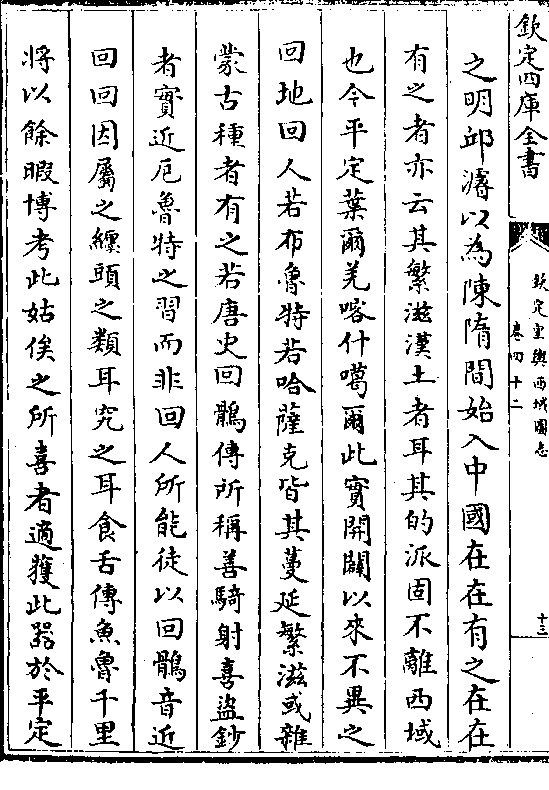 欽定四庫全書
欽定皇輿西域圖志
卷四十二
十三
之明邱濬以為陳隋間始入中國在在有之在在
有之者亦云其繁滋漢土者耳其的派固不離西域
也今平定葉爾羌喀什噶爾此實開闢以來不異之
回地回人若布魯特若哈薩克皆其蔓延繁滋或雜
蒙古種者有之若唐史回鶻傳所稱善騎射喜盜鈔
者實近厄魯特之習而非回人所能徒以回鶻音近
回回因屬之纏頭之類耳究之耳食舌傳魚魯千里
將以餘暇博考此姑俟之所喜者適獲此器於平定